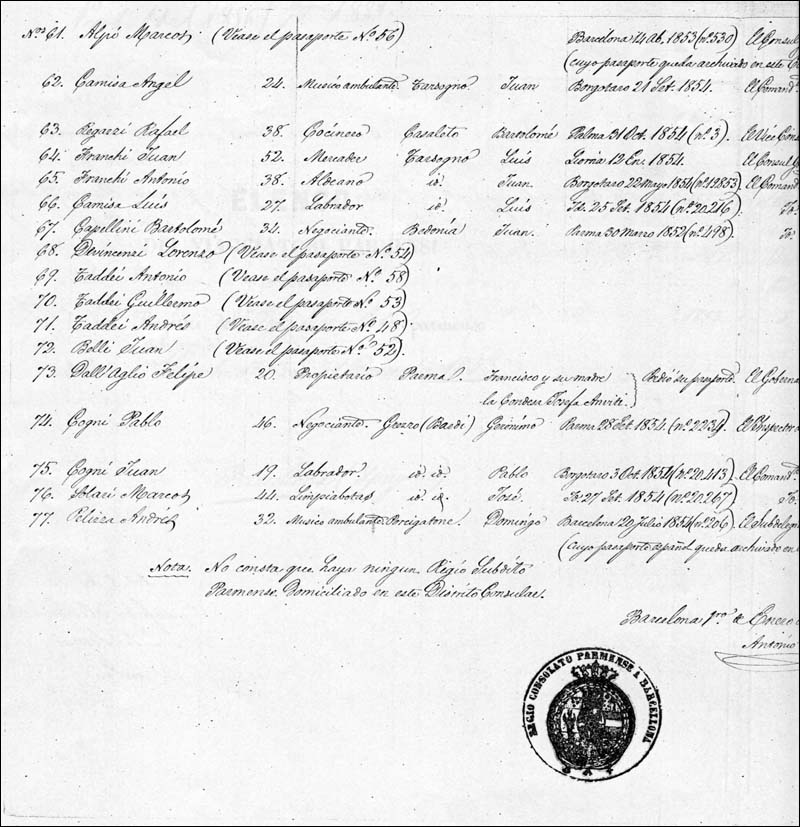 Nos 61. Alpi Marcos (Vease el pasaporte No. 56) Barcelona 14 Ab. 1853 (no. 530) El Consul
(cuyo pasaporte queda archivado en este
62. Camisa Angel 24. Musico ambulante Tarsogno Juan Borgotaro 21 Set. 1854. El Comand
63. Regazzi Rafael 38. Cocinero Casaleto Bartolomé Palma 31 Oct. 1854 (no. 3). El Vice Cons
64. Franchi Juan 52. Mercader Tarsogno Luis Liorna 12 En. 1854. El Consul
65. Franchi Antonio 38. id. Juan. Borgotaro 22 Mayo 1854 (no. 12853) El Comand
66. Camisa Luis 27. Labrador id. Luis Id. 25 Set. 1854 (no. 20216). Id.
67. Capellini Bartolomé 34. Negociante Bedonia Juan. Parma 30 Marzo 1852 (no. 498). Id.
68. Devincenzi Lorenzo (Vease el pasaporte No. 54)
69. Taddei Antonio (Vease el pasaporte No. 58)
70. Taddei Guillermo (Vease el pasaporte No. 53)
71. Taddei Andrés (Vease el pasaporte No. 48)
72. Belli Juan (Vease el pasaporte No. 52).
73. Dall'Aglio Felipe 20. Propietario Parma. Francisco y su madre la Condesa Josefa Anviti } Pedió su pasaporte El Goberna
74. Cogni Pablo 46. Negociante Grezzo (Bardi) Gerónimo Parma 28 Set. 1854. (no. 2234). El Inspector
75. Cogni Juan 19. Labrador id. id. Pablo Borgotaro 3 Oct. 1854 (no. 20413). El Comand
76. Solari Marcos 44. Limpiabotas id. id. José. Id. 27 Set. 1854 (no. 20267) Id.
77. Pelizza Andrés 32. Musico ambulante Porcigatone. Domingo Barcelona 20 Julio 1854 (no. 206) El Subdeleg
(cuyo pasaporte español queda archivado en
Nota. No consta que haya ningun Regio Subdito
Parmense Domiciliado en este Distrito Consular.
Barcelona 1ro. de Enero
Antonio
REGIO CONSOLATO PARMENSE A BARCELLONA